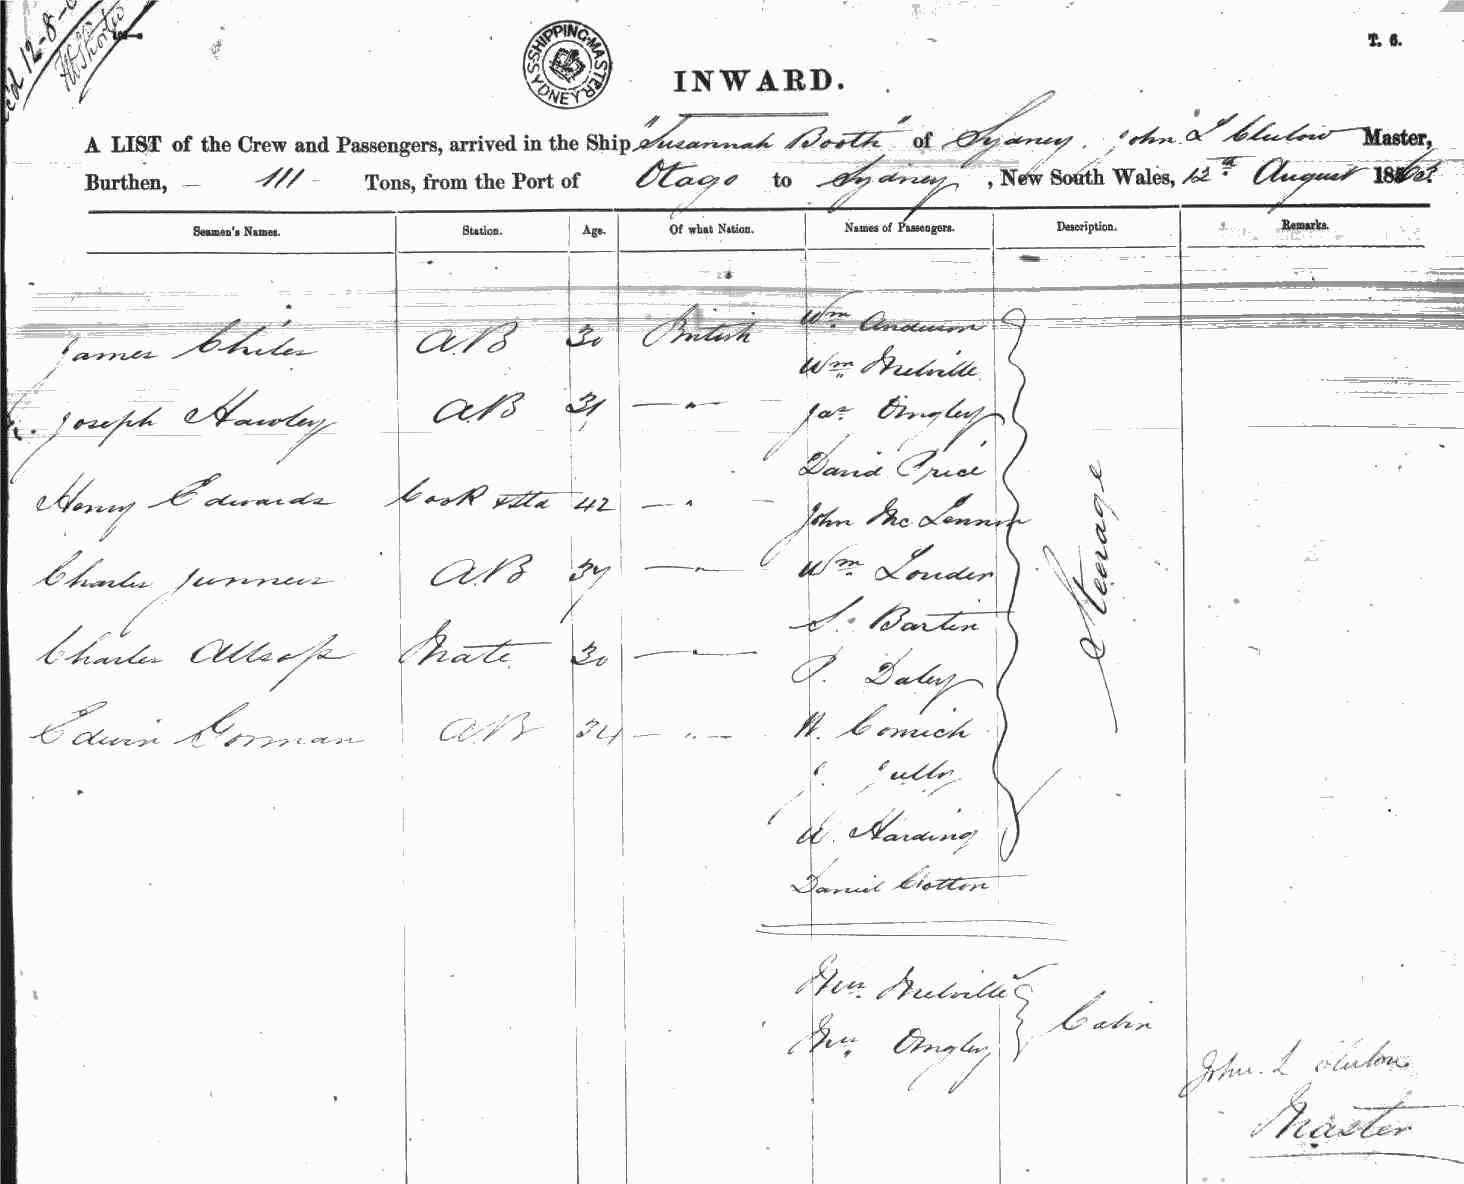 12-8-
SHIPPING MASTER SYDNEY
T. 6.
INWARD.
A LIST of the Crew and Passengers, arrived in the Ship "Susannah Booth" of Sydney, John L Clulow Master,
Burthen, — 111 — Tons, from the Port of Otago to Sydney, New South Wales, 12th August 186
Seamen's Names. Station. Age. Of what Nation. Names of Passengers. Description. Remarks.
James Chiles A.B 30 British Wm Anderson
Wm Melville
Joseph Hawley A.B 31 — " — Jas Ongley
David Price
Henry Edwards Cook & Std 42 — " — John McLennon
Charles A.B 37 — " — Wm Louder
S. Bartin
Charles Allsop Mate 30 — " — P. Daley
Edwin Gorman A.B 34 — " — W. Comich
J.
W. Harding
Daniel Cotton
Steerage
Mrs Melville
Mrs Ongley
Cabin
John. L Clulow
Master